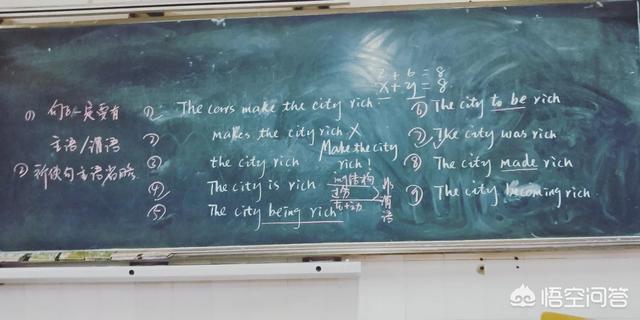 ① 句子一定要有
主语/谓语
② 祈使句主语省略
2 + 6 = 8
x + y = 8
① The cows make the city rich
② makes the city rich X
Make the city
rich!
③ the city rich
④ The city is rich
⑤ The city being rich
ing结构
过分
to+动
非谓语
⑥ The city to be rich
⑦ The city was rich
⑧ The city made rich
⑨ The city becoming rich
悟空问答